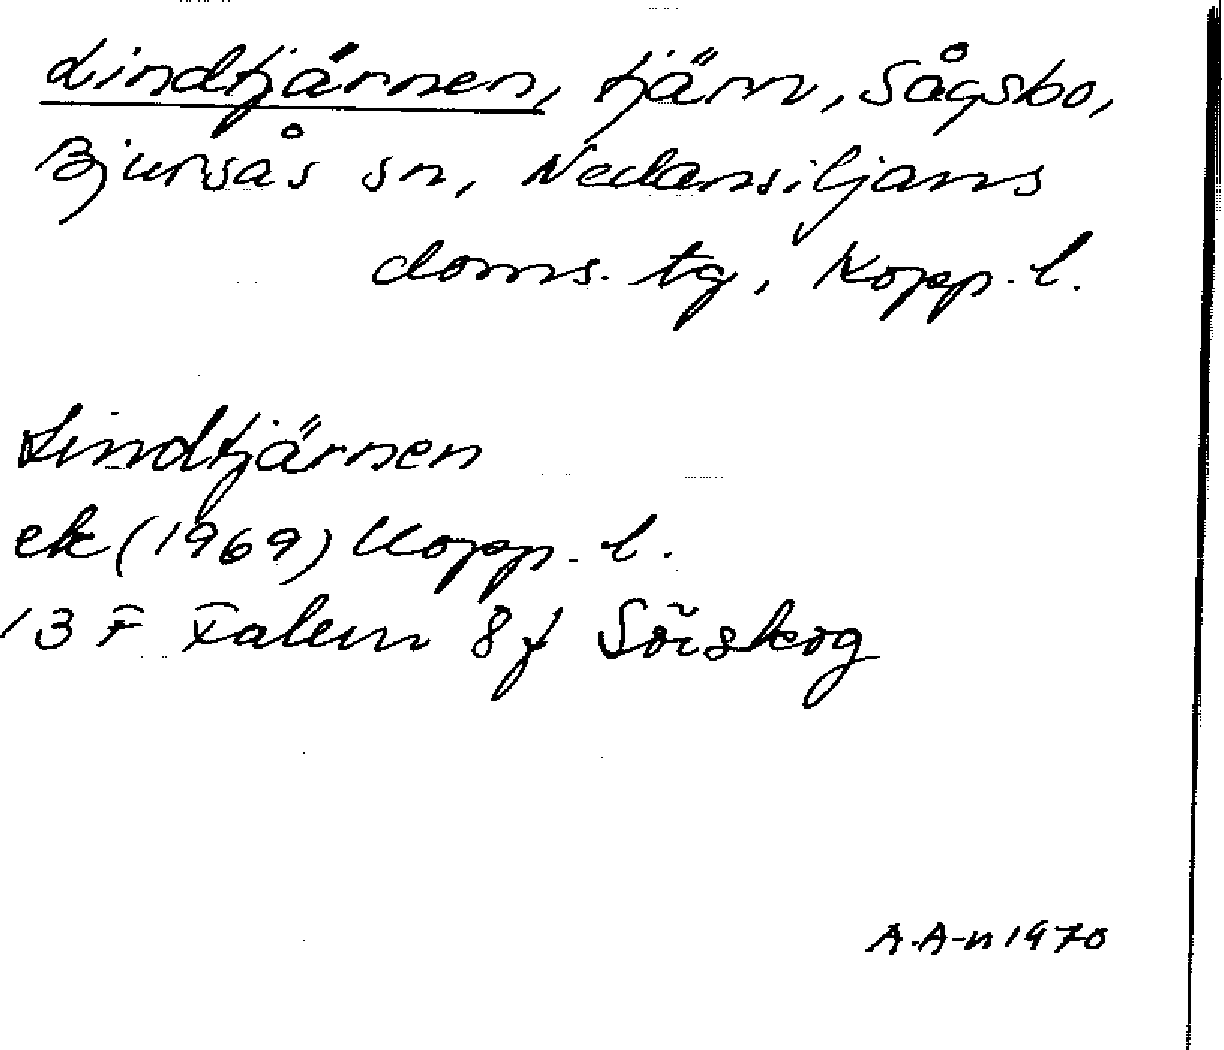 Lindtjärnen, tjärn, Sågsbo,
Bjursås sn, Nedansiljans
doms. tg, Kopp. l.
Lindtjärnen
ek (1969) Kopp. l.
13 F Falun 8 f Sörskog
A. A-n 1970